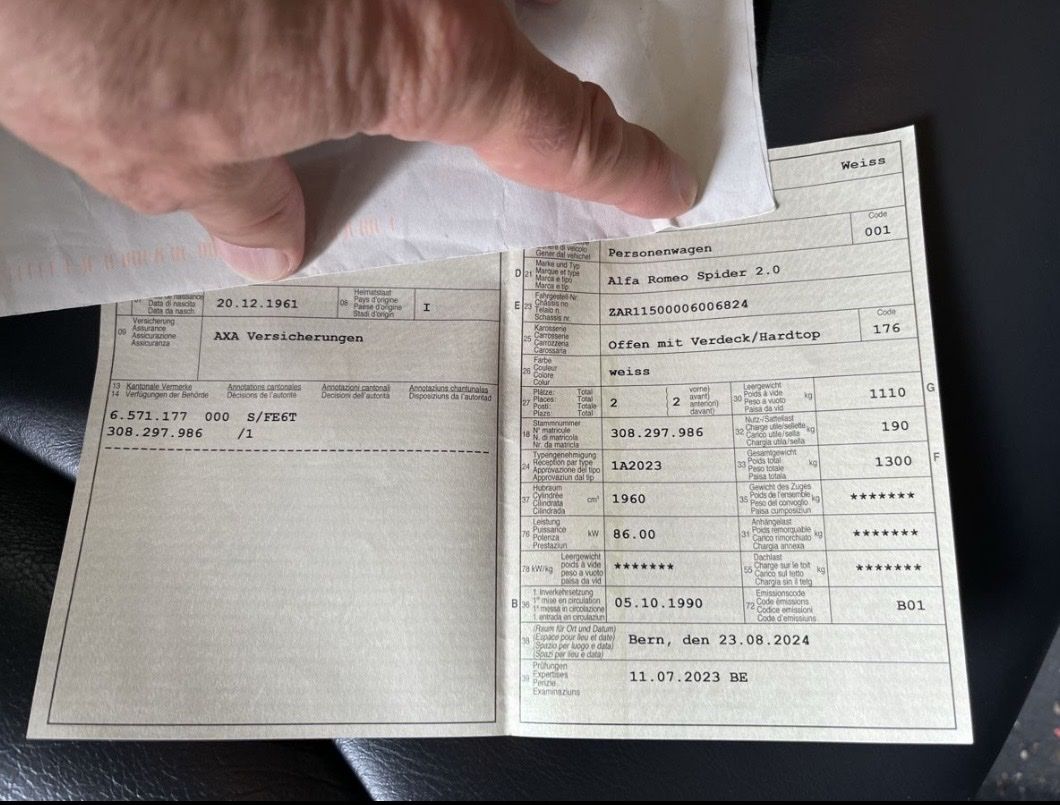 Data di nascita
Data da nasch.
20.12.1961
08
Heimatstaat
Pays d'origine
Paese d'origine
Stadi d'origin
I
09
Versicherung
Assurance
Assicurazione
Assicuranza
AXA Versicherungen
13 Kantonale Vermerke Annotations cantonales Annotazioni cantonali Annotaziuns chantunalas
14 Verfügungen der Behörde Décisions de l'autorité Decisioni dell'autorità Disposiziuns da l'autoritad
6.571.177 000 S/FE6T
308.297.986 /1
Weiss
Code
001
Personenwagen
D 21
Marke und Typ
Marque et type
Marca e tipo
Marca e tip
Alfa Romeo Spider 2.0
E 23
Fahrgestell-Nr.
Châssis no
Telaio n.
Schassis nr.
ZAR11500006006824
25
Karosserie
Carrosserie
Carrozzeria
Carossaria
Offen mit Verdeck/Hardtop
Code
176
26
Farbe
Couleur
Colore
Colur
weiss
27
Plätze: Total
Places: Total
Posti: Totale
Plazs: Total
2
2
vorne)
avant)
anteriori)
davant)
30
Leergewicht
Poids à vide
Peso a vuoto
Paisa da vid
kg
1110
G
18
Stammnummer
N° matricule
N. di matricola
Nr. da matricla
308.297.986
32
Nutz-/Sattellast
Charge utile/sellette
Carico utile/sella
Chargia utila/sella
kg
190
24
Typengenehmigung
Réception par type
Approvazione del tipo
Approvaziun dal tip
1A2023
33
Gesamtgewicht
Poids total
Peso totale
Paisa totala
kg
1300
F
37
Hubraum
Cylindrée
Cilindrata
Cilindrada
cm³
1960
35
Gewicht des Zuges
Poids de l'ensemble
Peso del convoglio
Paisa cumposiziun
kg
*******
76
Leistung
Puissance
Potenza
Prestaziun
kW
86.00
31
Anhängelast
Poids remorquable
Carico rimorchiato
Chargia annexa
kg
*******
78 kW/kg
Leergewicht
poids à vide
peso a vuoto
paisa da vid
*******
55
Dachlast
Charge sur le toit
Carico sul tetto
Chargia sin il tetg
kg
*******
B 36
1. Inverkehrsetzung
1re mise en circulation
1a messa in circolazione
1. entrada en circulaziun
05.10.1990
72
Emissionscode
Code émissions
Codice emissioni
Code d'emissiuns
B01
38
(Raum für Ort und Datum)
(Espace pour lieu et date)
(Spazio per luogo e data)
(Spazi per lieu e data)
Bern, den 23.08.2024
39
Prüfungen
Expertises
Perizie
Examinaziuns
11.07.2023 BE